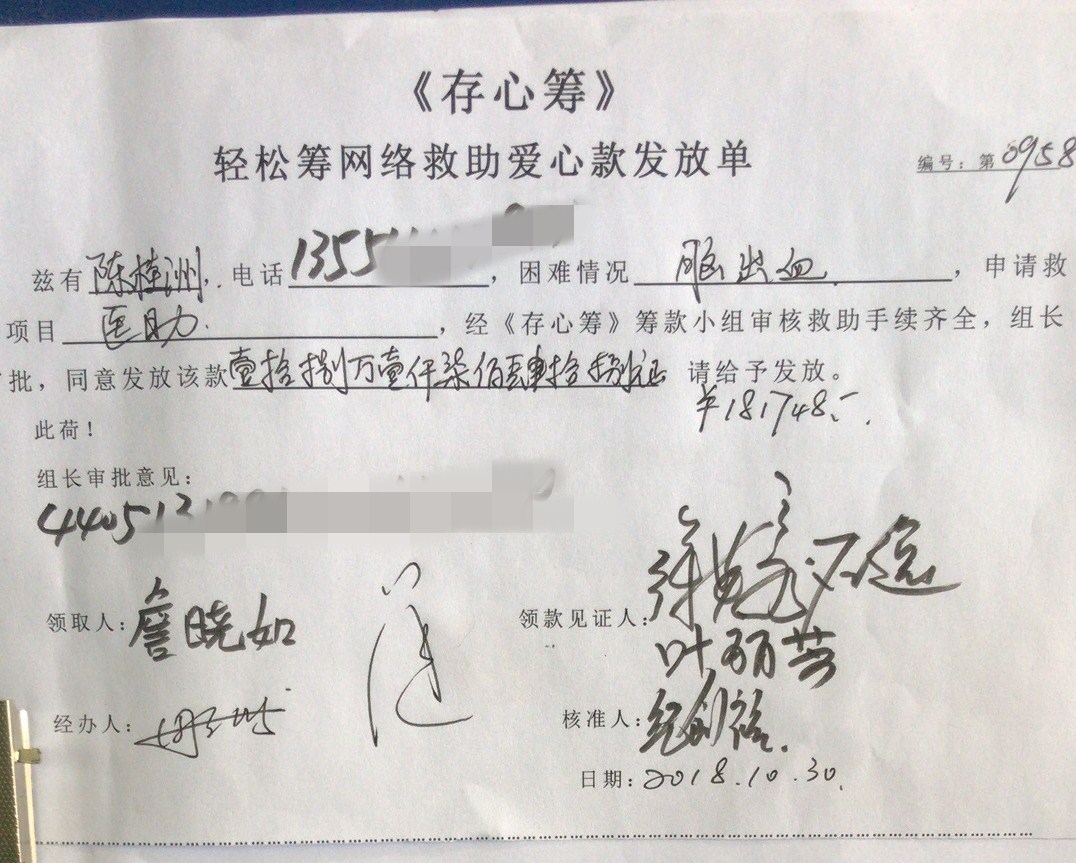 《存心筹》
轻松筹网络救助爱心款发放单
编号：第0958
兹有陈桂洲，电话1355，困难情况脑出血，申请救
项目医助，经《存心筹》筹款小组审核救助手续齐全，组长
批，同意发放该款壹拾捌万壹仟柒佰肆拾捌元 请给予发放。
¥181748.-
此荷！
组长审批意见：
4405131
领取人：詹晓如
领款见证人：
叶丽芸
经办人：
核准人：纪创裕
日期：2018.10.30.